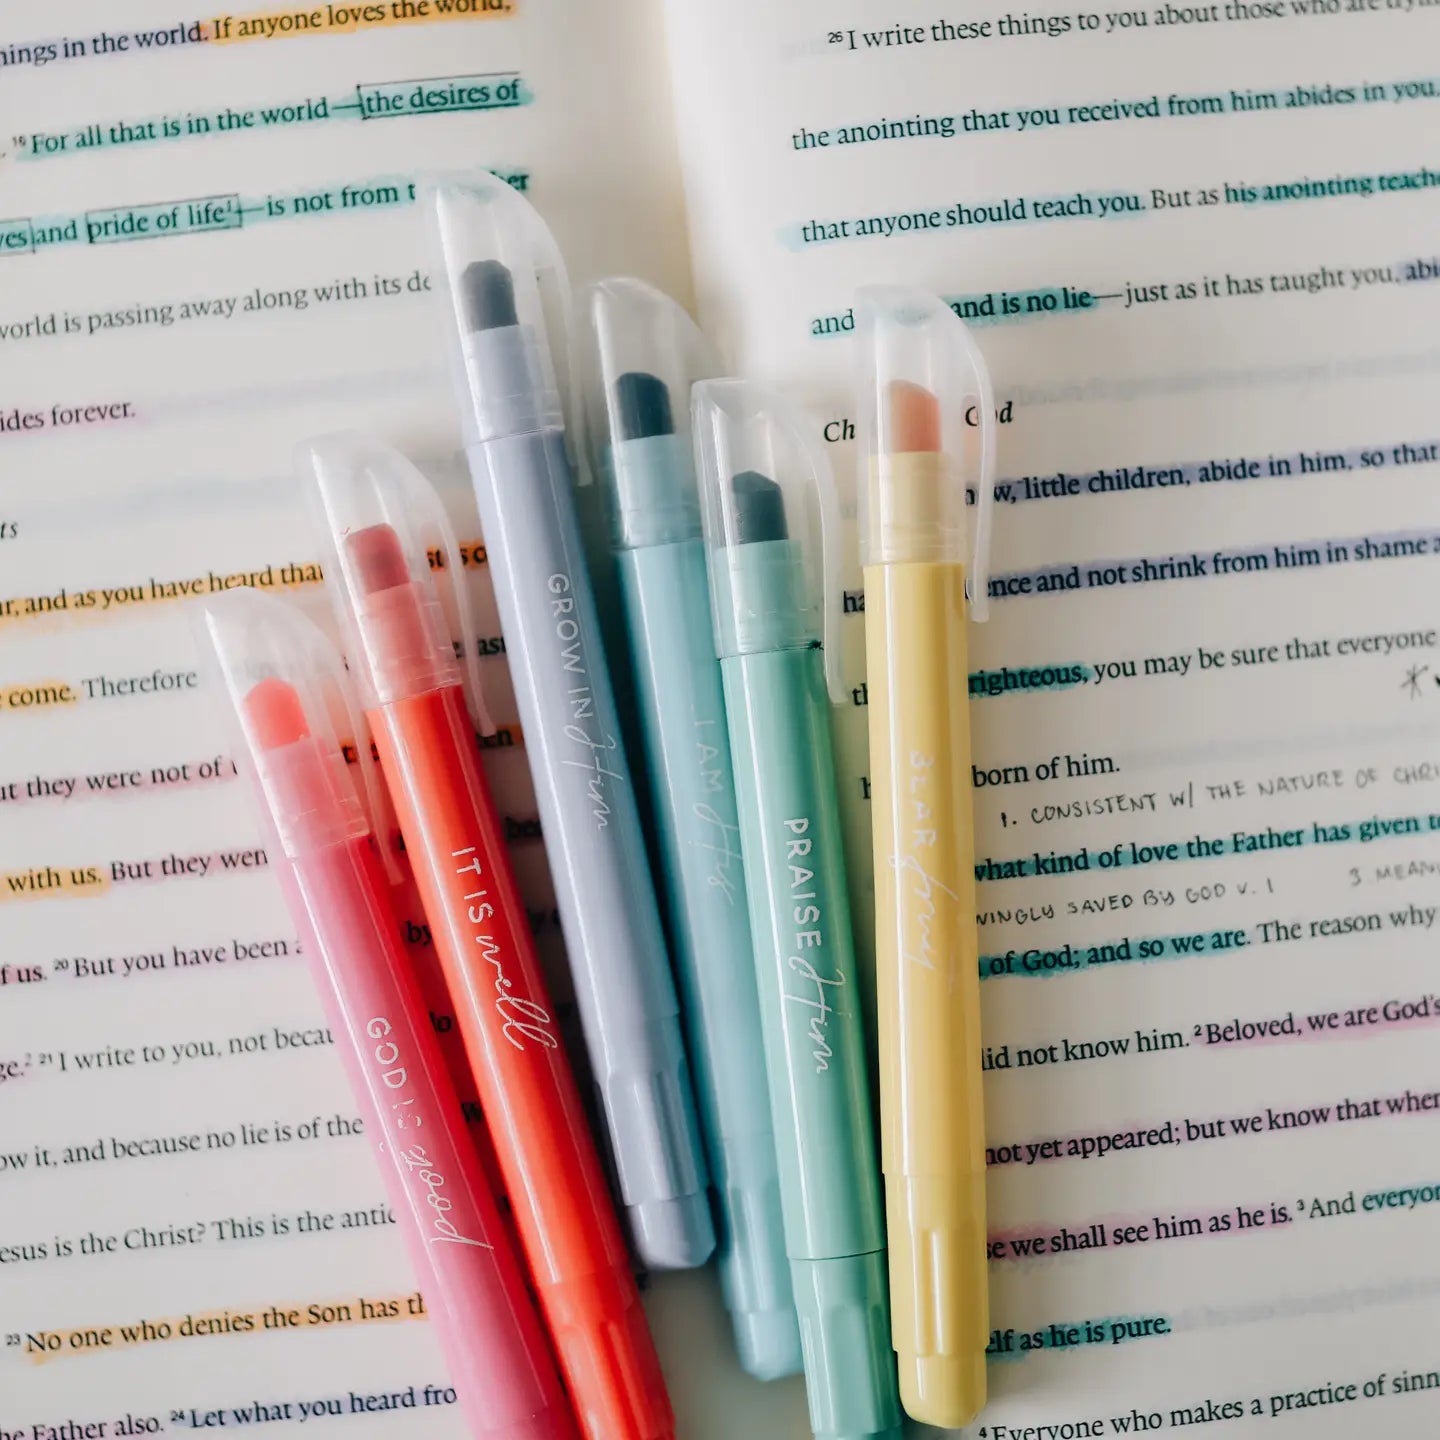 things in the world. If anyone loves the world,
16 For all that is in the world—the desires of
and pride of life1—is not from t
world is passing away along with its de
ides forever.
ts
r, and as you have heard tha
come. Therefore
they were not of
with us. But they wen
f us. 20 But you have been a
ge.2 21 I write to you, not becau
ow it, and because no lie is of the
esus is the Christ? This is the antic
23 No one who denies the Son has th
he Father also. 24 Let what you heard fro
26 I write these things to you about those who are
the anointing that you received from him abides in you,
that anyone should teach you. But as his anointing teache
and and is no lie—just as it has taught you, abi
Ch God
little children, abide in him, so that
ence and not shrink from him in shame a
righteous, you may be sure that everyone
born of him.
1. CONSISTENT W/ THE NATURE OF CHRI
what kind of love the Father has given to
INGLY SAVED BY GOD V. 1 3 MEAN
of God; and so we are. The reason why
did not know him. 2 Beloved, we are God's
not yet appeared; but we know that when
se we shall see him as he is. 3 And everyon
elf as he is pure.
4 Everyone who makes a practice of sinn
GOD IS good
IT IS well
GROW IN Him
I AM His
PRAISE Him
BEAR fruit